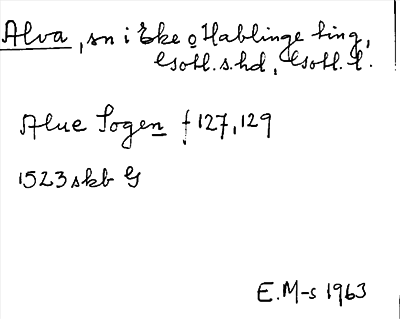 Alva, sn i Eke o Hablinge ting,
Gotl. s. hd, Gotl. l.
Alue Sogen f 127, 129
1523 skb G
E. M-s 1963